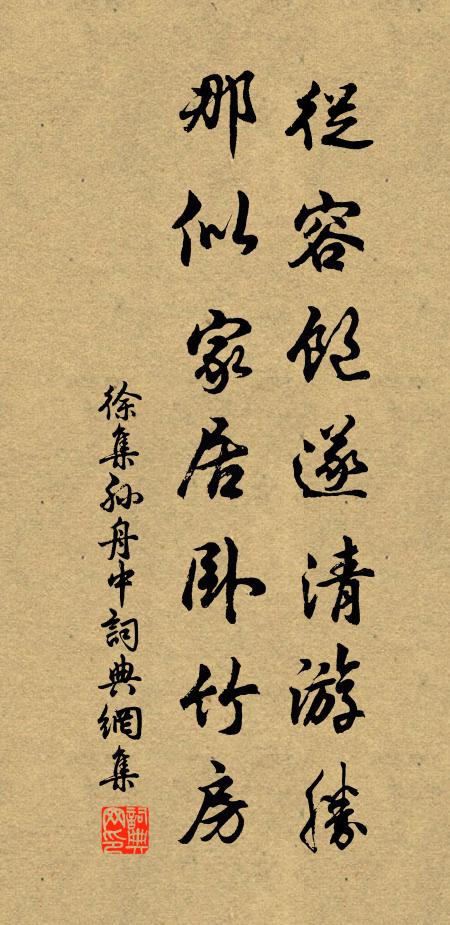 從容飽遂清游勝
那似家居卧竹房
徐集孫舟中詞典網集
詞典网印